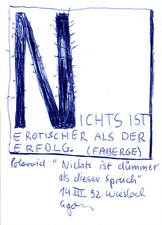 NICHTS IST
EROTISCHER ALS DER
ERFOLG. (FABERGE)
Polaroid "Nichts ist dümmer
als dieser Spruch"
14 III 92 Wiesloch